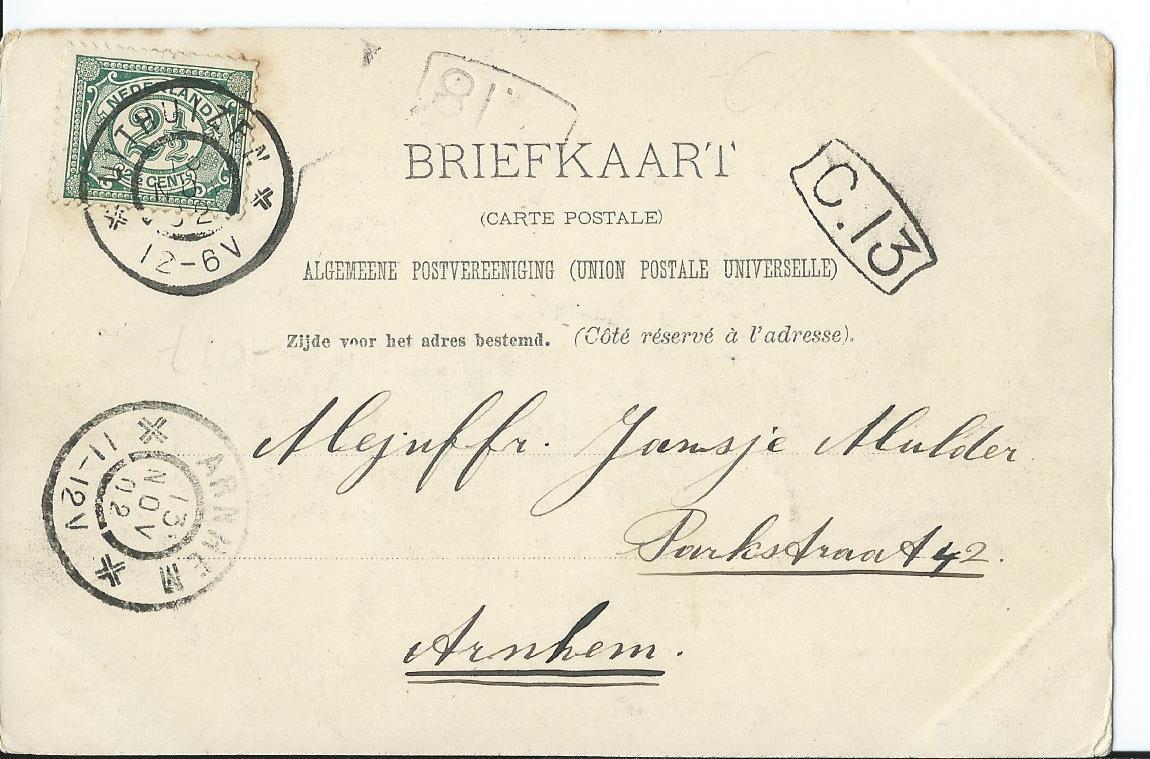 NEDERLAND
2 1/2
CENT
12-6V
81
BRIEFKAART
(CARTE POSTALE)
C.13
ALGEMEENE POSTVEREENIGING (UNION POSTALE UNIVERSELLE)
Zijde voor het adres bestemd. (Côté réservé à l'adresse).
ARNHEM
13 NOV 02
11-12V
Mejuffr. Jansje Mulder
Parkstraat 42.
Arnhem.